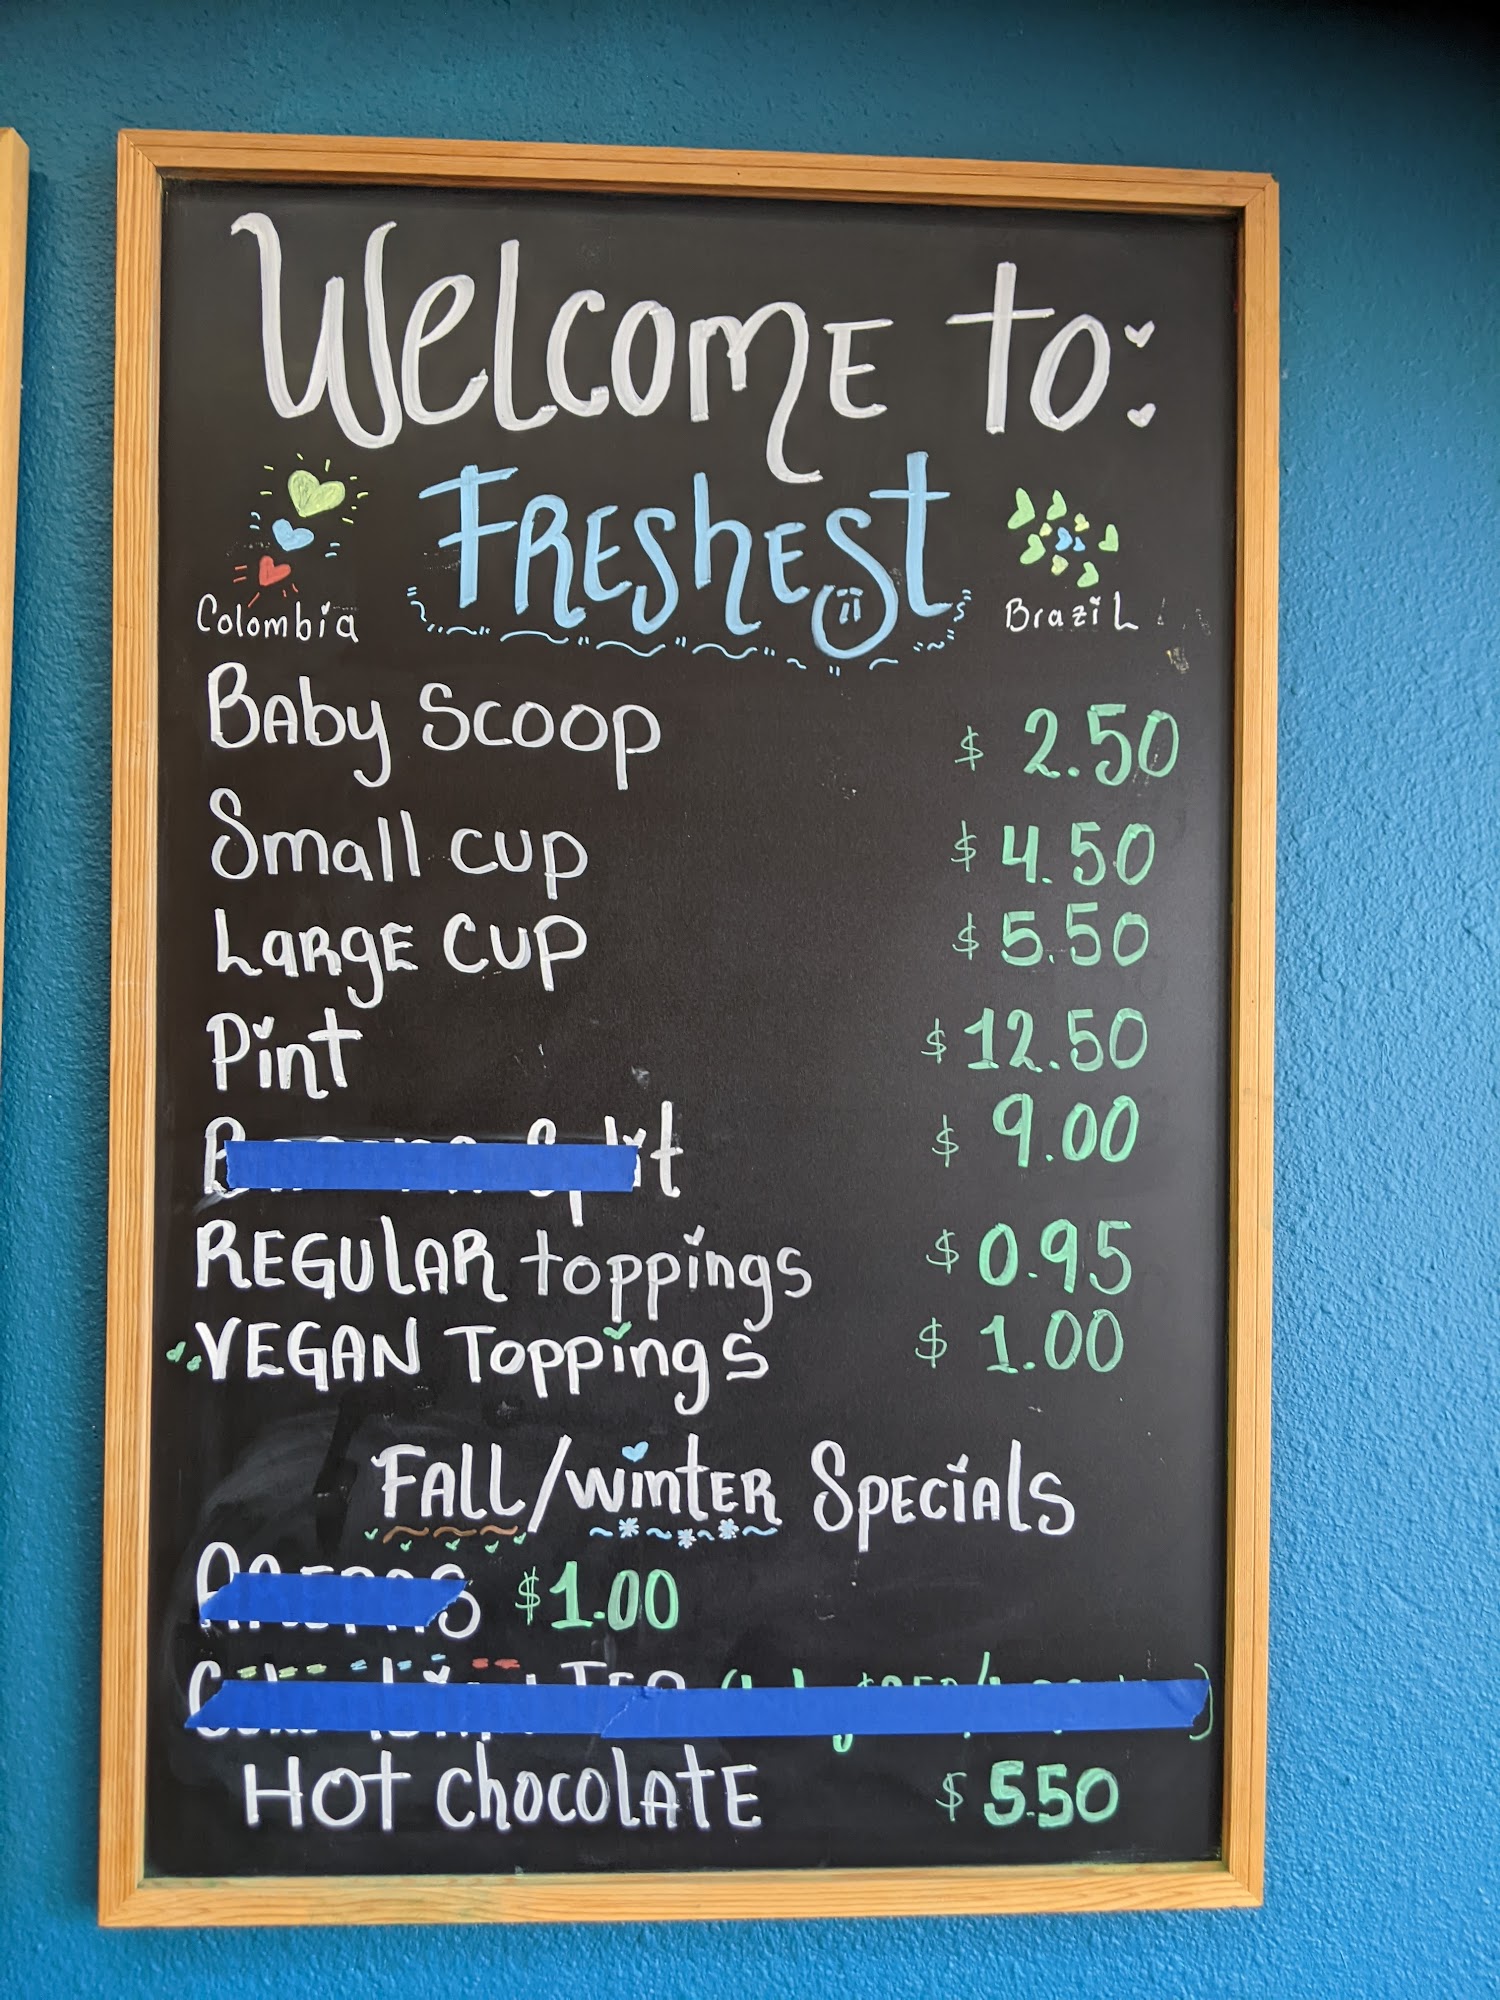 Welcome to:
Freshest
Colombia
Brazil
Baby Scoop $ 2.50
Small cup $ 4.50
Large Cup $ 5.50
Pint $ 12.50
Banana Split $ 9.00
REGULAR toppings $ 0.95
VEGAN Toppings $ 1.00
Fall/Winter Specials
$1.00
Hot Chocolate $ 5.50